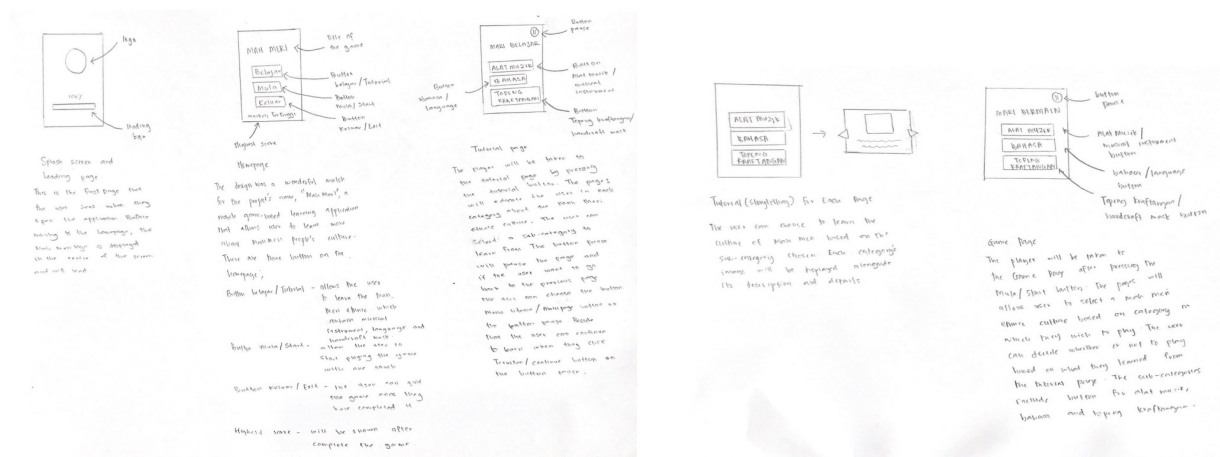 logo
100%
loading bar
Splash screen and
loading page
This is the first page that
the user sees when they
open the application. Before
moving to the homepage, the
is displayed
in the centre of the screen
and will load
MAH MERI
Title of
the game
Belajar
Mula
Keluar
Markah Tertinggi
Button
belajar/Tutorial
Button
Mula/Start
Button
Keluar/Exit
Highest score
Homepage
The design has a wonderful match
for the project's name, "Mah Meri", a
mobile game-based learning application
that allows user to learn more
about Mah Meri people's culture.
There are three button on the
homepage;
Button belajar/Tutorial - allows the user
to learn the Mah
Meri ethnic which
musical
instrument, language and
handcraft mask
Button Mula/Start - allow the user to
start playing the game
with one touch
Button Keluar/Exit - the user can quit
the game once they
have completed it
Highest score - will be shown after
complete the game
Button
pause
MARI BELAJAR
ALAT MUZIK
BAHASA
TOPENG
KRAFTANGAN
Button
Alat muzik/
musical
instrument
Button
Bahasa/
language
Button
Topeng kraftangan/
handcraft mask
Tutorial page
The player will be taken to
the tutorial page by pressing
the tutorial button. The pages
will educate the user in each
category about the Mah Meri
ethnic culture. The user can
select a sub-category to
learn from. The button pause
will pause the page and
if the user want to go
back to the previous page
the user can choose the button
Menu Utama/Mainpage button on
the button pause. Beside
that the user can continue
to learn when they click
Teruskan/continue button on
the button pause.
ALAT MUZIK
BAHASA
TOPENG
KRAFTANGAN
Tutorial (storytelling) For Each Page
The user can choose to learn the
culture of Mah Meri based on the
sub-category chosen. Each category's
image will be displayed alongside
its description and details
button
pause
MARI BERMAIN
ALAT MUZIK
BAHASA
TOPENG
KRAFTANGAN
Alat Muzik/
musical instrument
button
bahasa/language
button
Topeng kraftangan/
handcraft mask button
Game Page
The player will be taken to
the Game Page after pressing the
Mula/Start button. The pages will
allow user to select a Mah Meri
ethnic culture based on category in
which they wish to play. The user
can decide whether or not to play
based on what they learned from
the tutorial page. The sub-categories
include button for alat muzik,
bahasa and topeng kraftangan.